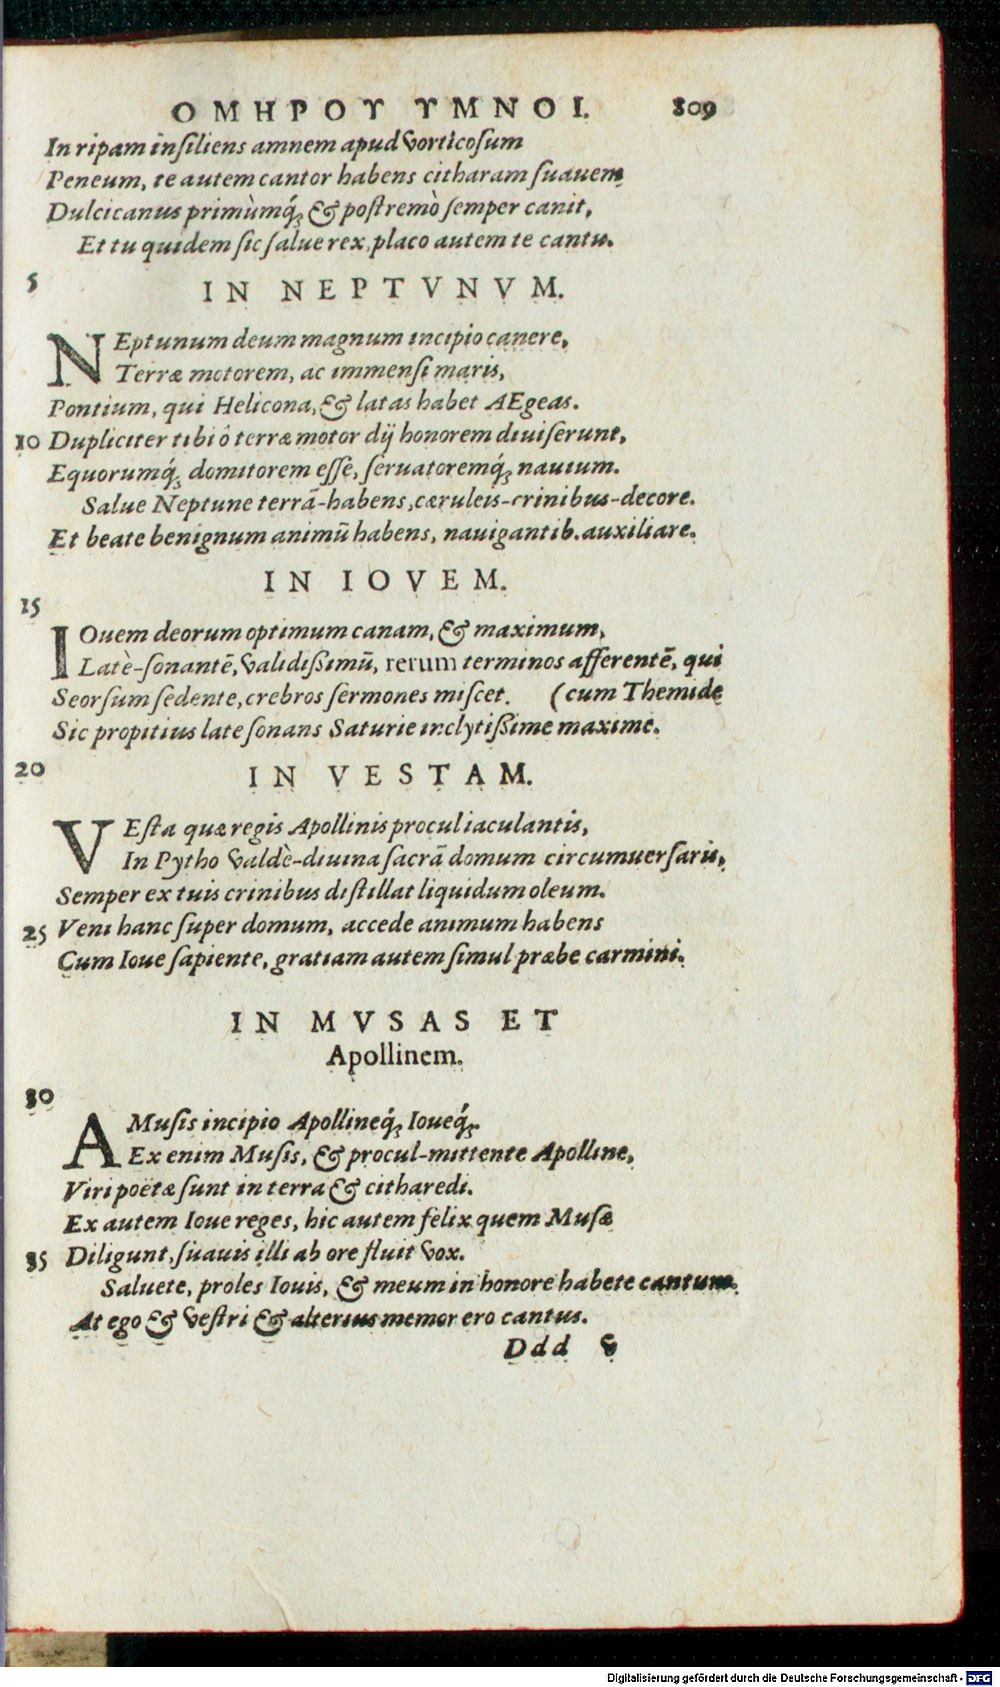 ΟΜΗΡΟΥ ΥΜΝΟΙ. 809
In ripam insiliens amnem apud vorticosum
Peneum, te autem cantor habens citharam suauem
Dulcicanus primùmq́; & postremò semper canit,
Et tu quidem sic salue rex, placo autem te cantu.
5
IN NEPTVNVM.
NEptunum deum magnum incipio canere,
Terræ motorem, ac immensi maris,
Pontium, qui Helicona, & latas habet AEgeas.
10 Dupliciter tibi ô terræ motor dij honorem diuiserunt,
Equorumq́; domitorem esse, seruatoremq́; nautum.
Salue Neptune terrā-habens, cæruleis-crinibus-decore.
Et beate benignum animū habens, nauigantib. auxiliare.
IN IOVEM.
15
IOuem deorum optimum canam, & maximum,
Latè-sonantē, validißimū, rerum terminos afferentē, qui
Seorsum sedente, crebros sermones miscet. (cum Themide
Sic propitius late sonans Saturie inclytißime maxime.
20
IN VESTAM.
VEsta quæ regis Apollinis procul iaculantis,
In Pytho valdè-diuina sacrā domum circumuersaris,
Semper ex tuis crinibus distillat liquidum oleum.
25 Veni hanc super domum, accede animum habens
Cum Ioue sapiente, gratiam autem simul præbe carmini.
IN MVSAS ET
Apollinem.
30
A Musis incipio Apollineq́; Ioueq́;.
Ex enim Musis, & procul-mittente Apolline,
Viri poëtæ sunt in terra & citharedi.
Ex autem Ioue reges, hic autem felix quem Musæ
35 Diligunt, suauis illi ab ore fluit vox.
Saluete, proles Iouis, & meum in honore habete cantum.
At ego & vestri & alterius memor ero cantus.
Ddd
Digitalisierung gefördert durch die Deutsche Forschungsgemeinschaft - DFG